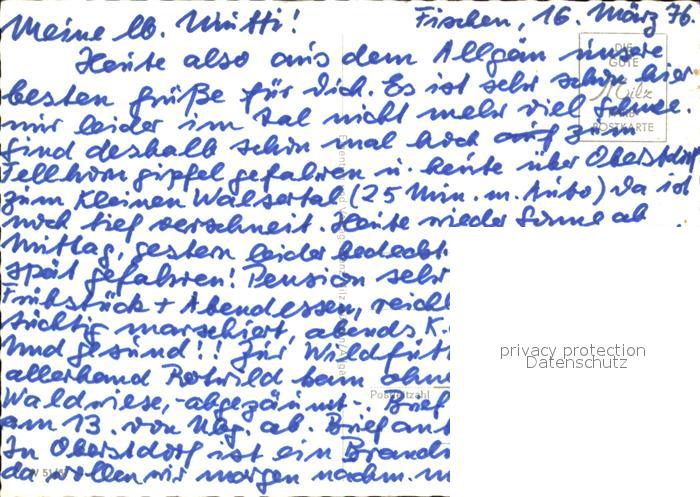 Fischen, 16. März 76.
Meine lb. Mutti!
Heute also aus dem Allgäu unsere
besten Grüße für Dich. Es ist sehr schön hier
nur leider im Tal nicht mehr viel Schnee.
Sind deshalb schon mal hoch auf zum
Fellhorngipfel gefahren u. heute über Oberstdorf
zum Kleinen Walsertal (25 Min. m. Auto) da ist
noch tief verschneit. Heute wieder Sonne ab
Mittag, gestern leider bedeckt
spät gefahren! Pension sehr
Frühstück + Abendessen, reich
tüchtig marschiert, abends K.
Und gesund!! Zur Wildfütt
allerhand Rotwild kam
Waldwiese, -abgezäunt-. Brief
am 13. von Nbg. ab. Brief
In Oberstdorf ist ein
da wollen wir morgen nachm.
DIE
GUTE
Milz
POSTKARTE
Postleitzahl
privacy protection
Datenschutz